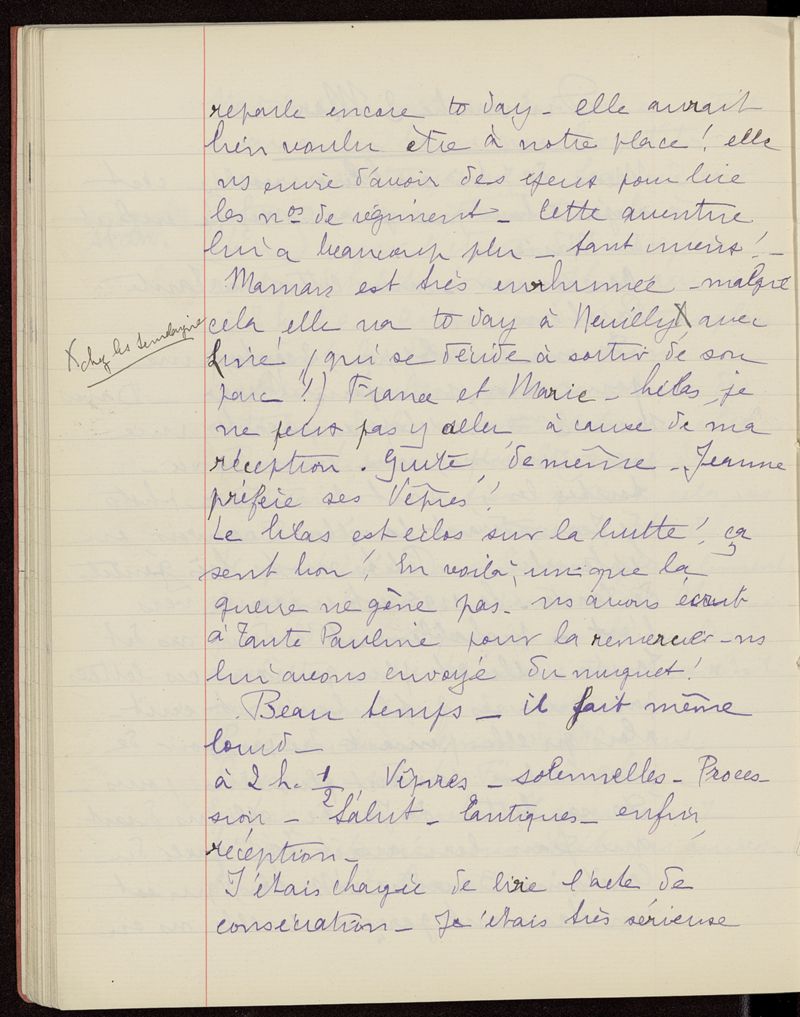 reparle encore to day - elle aurait
bien voulu être à notre place ! elle
ns envie d'avoir des yeux pour lire
les nos de régiment - Cette aventure
lui a beaucoup plu - tant mieux ! -
Maman est très enrhumée - malgré
cela, elle va to day à Neuilly X avec
X chez les
(qui se décide à sortir de son
parc !) France et Marie - hélas, je
ne peux pas y aller à cause de ma
réception. Guite, de même - Jeanne
préfère ses Vêpres !
Le lilas est éclos sur la butte ! ça
sent bon ! En voilà un que la
guerre ne gêne pas - ns avons écrit
à Tante Pauline pour la remercier - ns
lui avons envoyé du muguet !
Beau temps - il fait même
lourd -
à 2 h. 1/2, Vêpres - solennelles - Proces-
sion - Salut - Cantiques - enfin,
réception -
J'étais chargée de lire l'acte de
consécration - Je étais très sérieuse